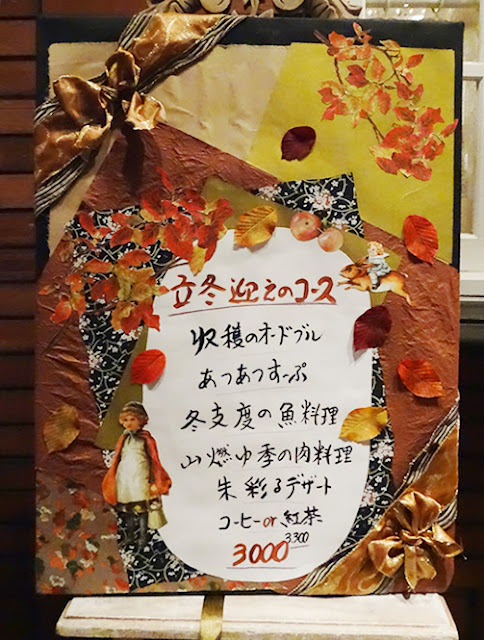 立冬迎えのコース
収穫のオードブル
あつあつすーぷ
冬支度の魚料理
山燃ゆ季の肉料理
朱彩るデザート
コーヒー or 紅茶
3000 3300